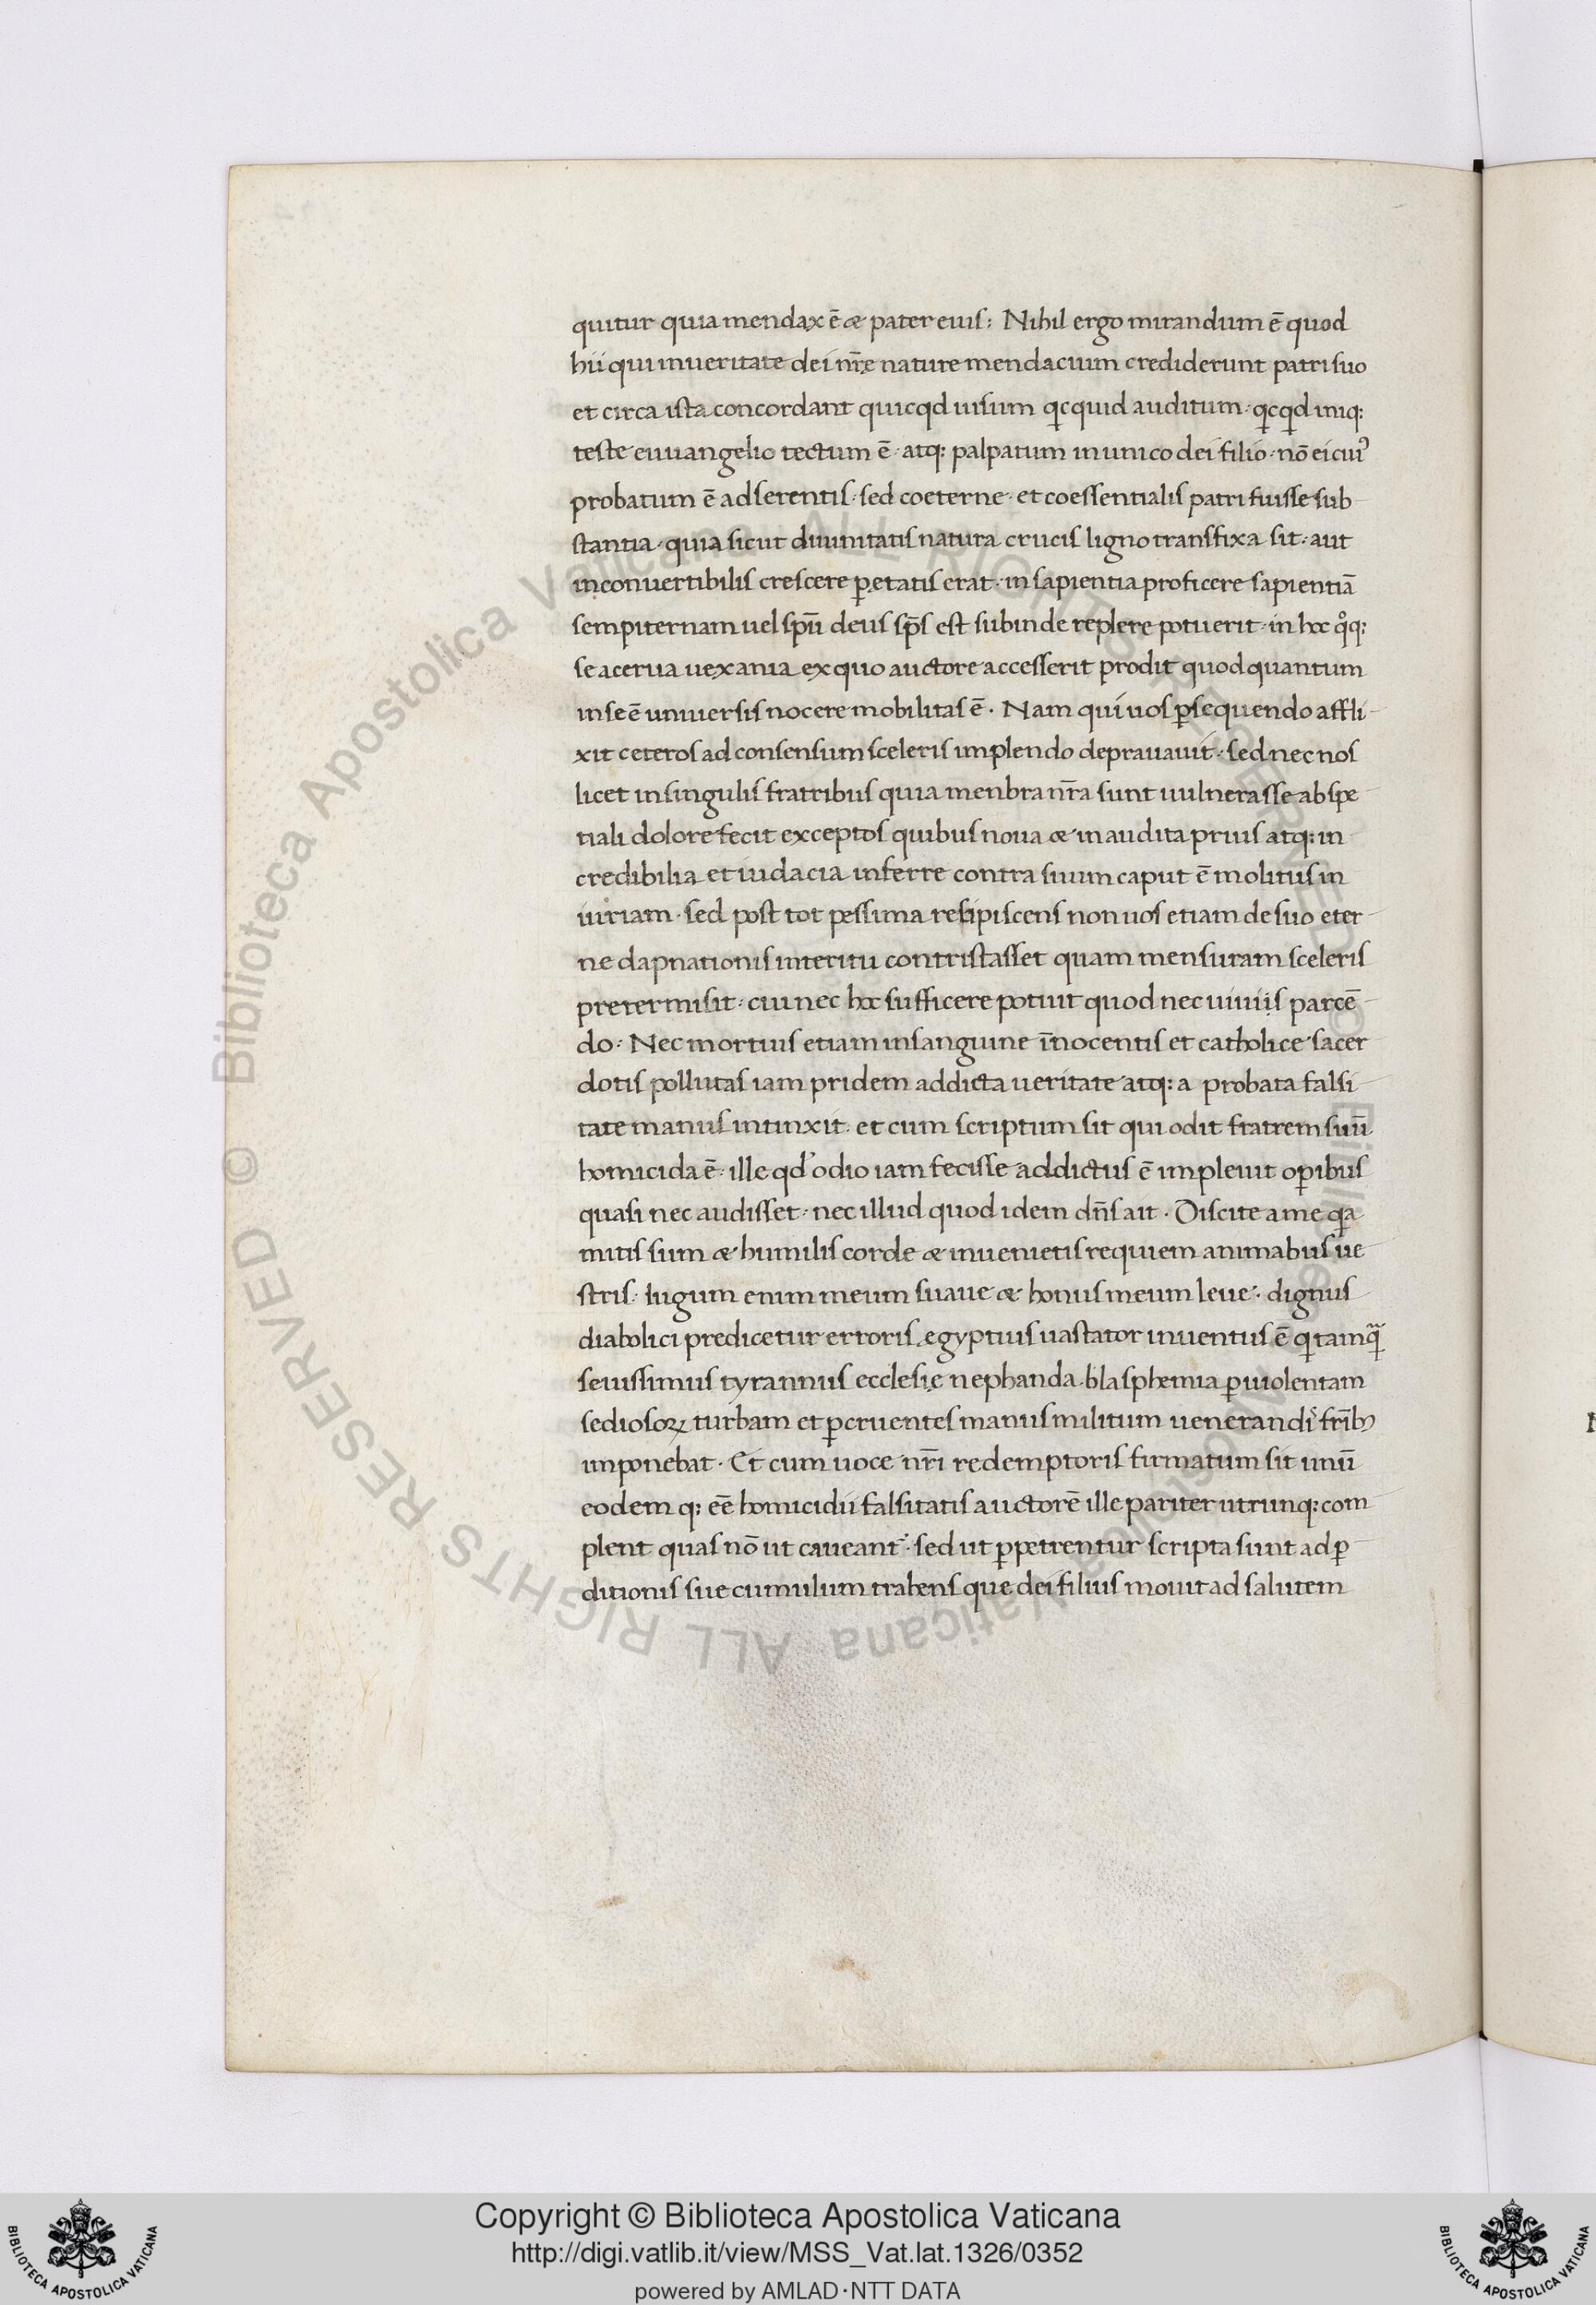 quitur quia mendax ē & pater eius: Nihil ergo mirandum ē quod
hii qui in ueritate dei nr̄ę nature mendacium crediderunt patri suo
et circa ista concordant quicqd uisum qicquid auditum· qicqid iniq:
teste euuangelio tectum ē· atq: palpatum in unico dei filio· nō ei cui᾽
probatum ē adserentis· sed coeterne· et coessentialis patri fuisse sub
stantia· quia sicut diuinitatis natura crucis ligno transfixa sit· aut
inconuertibilis crescere p̱ etatis erat· in sapientia proficere sapientiā
sempiternam uel sp̄u deus sp̄s est subinde replere potuerit· in hoc q̊q:
se acerua uexania ex quo auctore accesserit prodit quod quantum
in se ē uniuersis nocere mobilitas ē· Nam qui uos p̱sequendo affli-
xit ceteros ad consensum sceleris implendo deprauauit· sed nec nos
licet in singulis fratribus quia menbra nr̄a sunt uulnerasse ab spe
tiali dolore fecit exceptos quibus noua & inaudita prius atq: in
credibilia et iudacia inferre contra suum caput ē molitus in
iuriam· sed post tot pessima resipiscens non uos etiam de suo eter-
ne dapnationis interitu contristasset quam mensuram sceleris
pretermisit· cui nec hoc sufficere potuit quod nec uiuiis parcē-
do· Nec mortuis etiam in sanguine īnocentis et catholice sacer
dotis pollutas iam pridem addicta ueritate atq: a probata falsi-
tate manus intinxit· et cum scriptum sit qui odit fratrem suū
homicida ē· ille qd᾽ odio iam fecisse addictus ē impleuit op̱ibus
quasi nec audisset· nec illud quod idem dn̄s ait· Discite a me qia
mitis sum & humilis corde & inuenietis requiem animabus ue
stris· Iugum enim meum suaue & honus meum leue· dignus
diabolici predicetur erroris ęgyptius uastator inuentus ē qi tamqᷓ
seuissimus tyrannus ecclesię nephanda blasphemia p̱ uiolentam
sediosoꝝ turbam et p̱ cruentes manus militum uenerandi᾽ fr̄ib᾽
imponebat· Et cum uoce nr̄i redemptoris firmatum sit unū
eodem q: eē homicidii falsitatis auctorē ille pariter utrunq: com-
plent quas nō ut caueant᾽· sed ut p̱petrentur scripta sunt ad p̱
ditionis sue cumulum trahens que dei filius mouit ad salutem
© Biblioteca Apostolica Vaticana ALL RIGHTS RESERVED © Biblioteca Apostolica Vaticana ALL RIGHTS RESERVED
Copyright © Biblioteca Apostolica Vaticana
http://digi.vatlib.it/view/MSS_Vat.lat.1326/0352
powered by AMLAD·NTT DATA
BIBLIOTECA APOSTOLICA VATICANA
BIBLIOTECA APOSTOLICA VATICANA